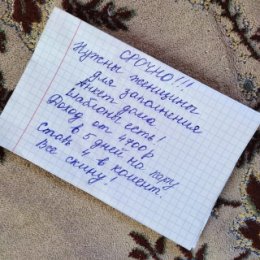 СРОЧНО!!!
Нужны женщины
для заполнения
Анкет дома
Шаблоны есть!
Доход от 4400р
в 5 дней на пару
Ставь 4 в комент.
Все скину.